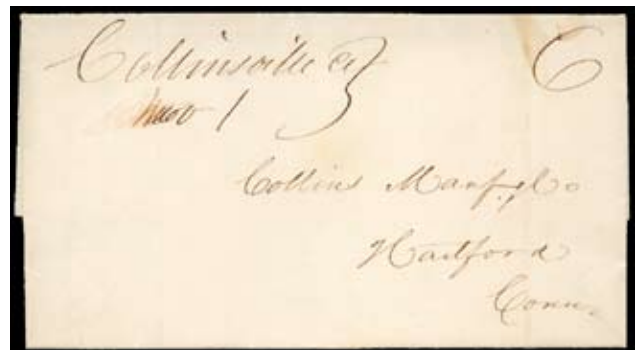 Collinsville Ct 6
Nov 1
Collins Manf. Co
Hartford
Conn.